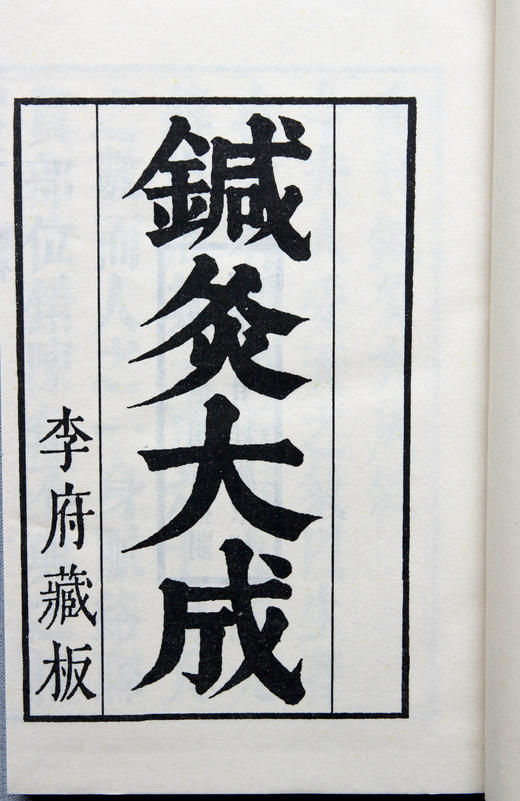 鍼灸大成
李府藏板